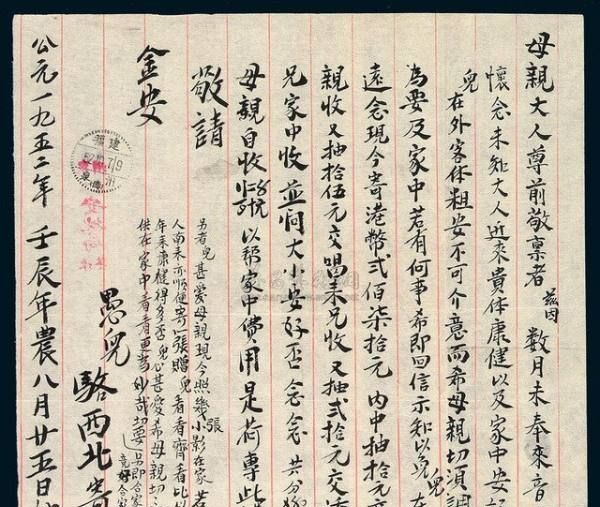 母親大人尊前敬稟者 茲因 數月未奉來音
懷念未知大人近來貴体康健以及家中安
兒在外客体粗安不可介意而希母親切須調
為要及家中若有何事希即回信示知以免兒在
遠念現今寄港幣弍佰柒拾元 内中抽拾元
親收又抽拾伍元交唱來兄收又抽弍拾元交
兄家中收 並问大小安好否 念念 共分
母親自收 以帮家中費用是荷專此
敬請
金安
另者兒甚愛母親現今照幾張小影在家若
人南来亦順便寄一張贈兒看看齊看比以
年来康健得多否兒心甚愛希母親切
供在家中看看更為妙哉切要
另即合家
愚兒 駱西北
公元一九五二年 壬辰年農八月廿五日
福建